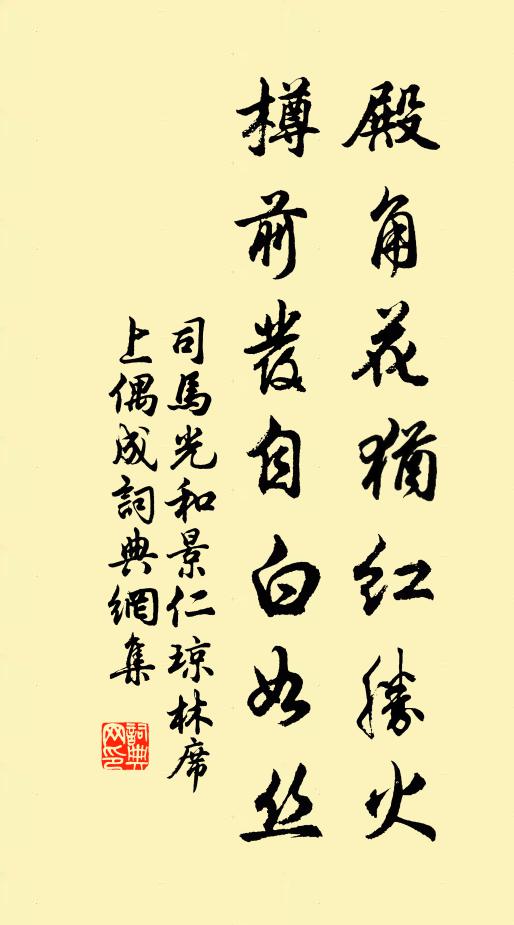 殿角花猶紅勝火
樽前發自白如丝
司馬光和景仁琼林席
上偶成詞典網集
詞典
网印